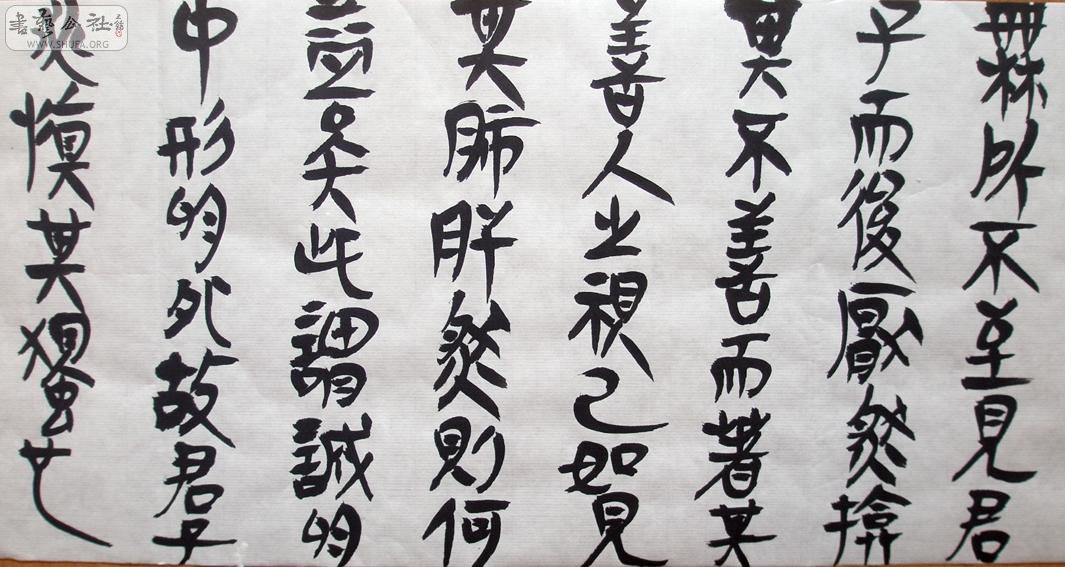 無所不至見君
子而後厭然揜
其不善而著其
善人之視己如見
其肺肝然則何
益矣此謂誠於
中形於外故君子
必慎其獨也
書藝公社
WWW.SHUFA.ORG